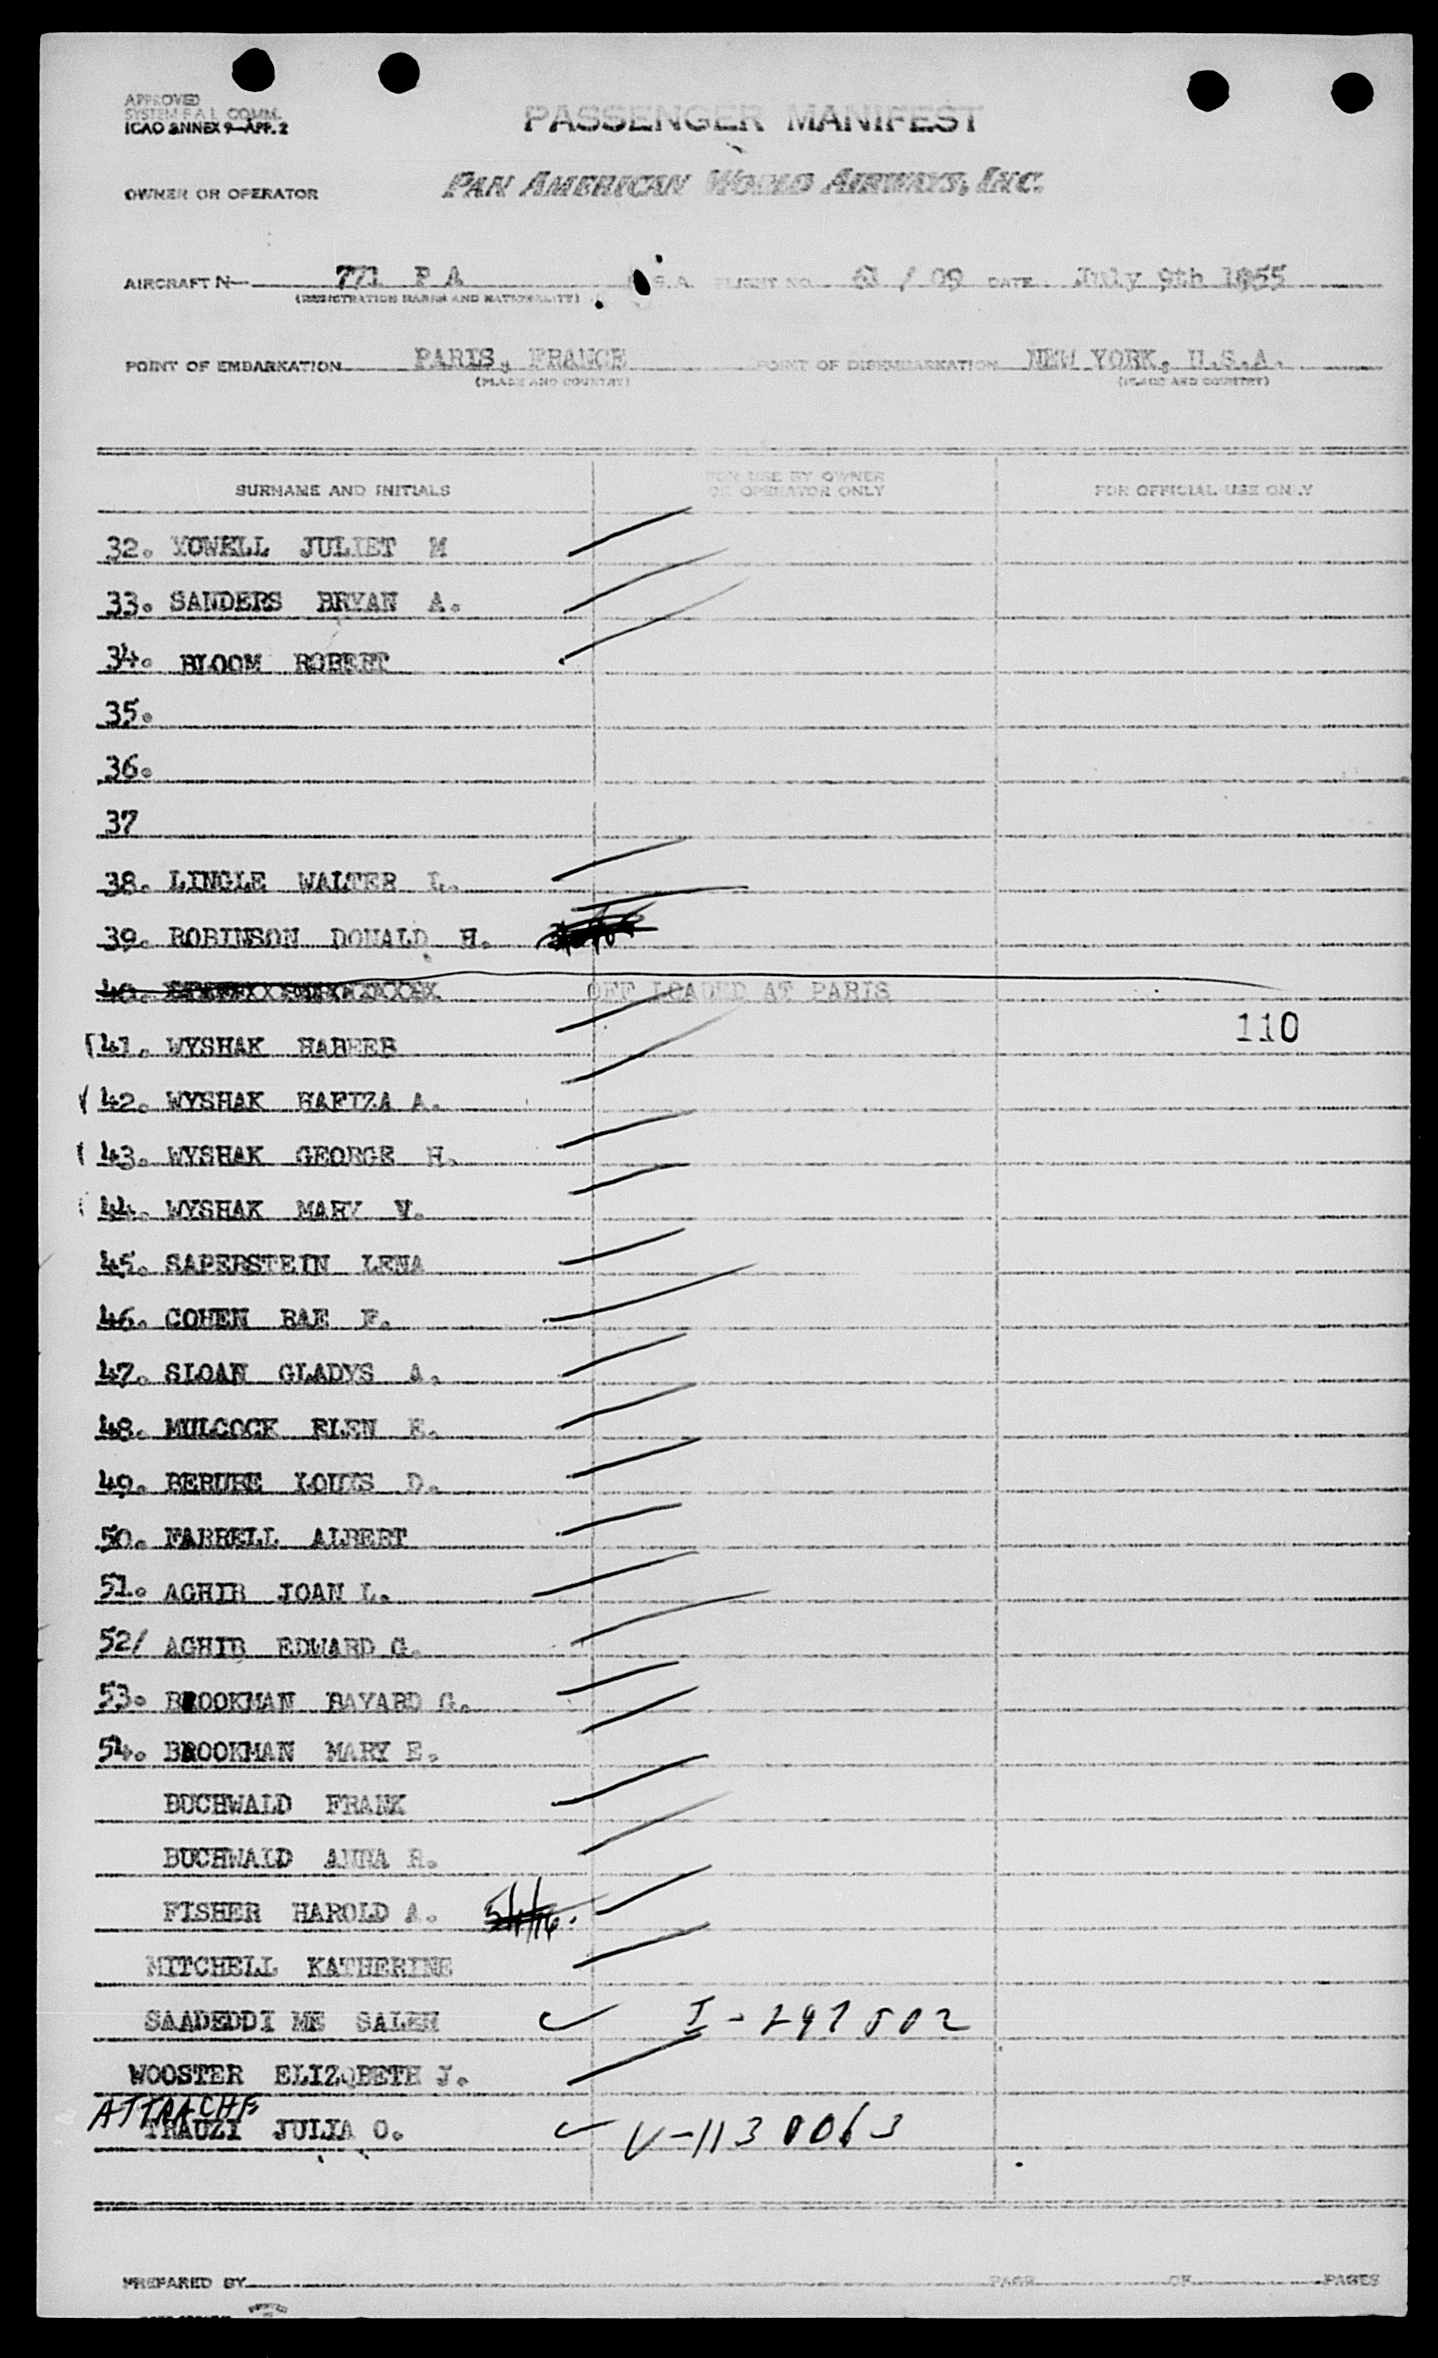 APPROVED
SYSTEM F.A.L. COMM.
ICAO ANNEX 9—APP. 2
PASSENGER MANIFEST
OWNER OR OPERATOR PAN AMERICAN WORLD AIRWAYS, INC.
AIRCRAFT N— 771 P A U.S.A. FLIGHT NO. / 09 DATE July 9th 1955
(REGISTRATION MARKS AND NATIONALITY)
POINT OF EMBARKATION PARIS, FRANCE POINT OF DISEMBARKATION NEW YORK, U.S.A.
(PLACE AND COUNTRY) (PLACE AND COUNTRY)
SURNAME AND INITIALS FOR USE BY OWNER OR OPERATOR ONLY FOR OFFICIAL USE ONLY
32. YOWELL JULIET M
33. SANDERS BRYAN A.
34. BLOOM ROBERT
35.
36.
37
38. LINGLE WALTER L.
39. ROBINSON DONALD H.
40. OFF LOADED AT PARIS
110
41. WYSHAK HABEEB
42. WYSHAK HAFIZA A.
43. WYSHAK GEORGE H.
44. WYSHAK MARY V.
45. SAPERSTEIN LENA
46. COHEN RAE F.
47. SLOAN GLADYS A.
48. MULCOCK ELEN E.
49. BERUBE LOUIS D.
50. FARRELL ALBERT
51. AGHIB JOAN L.
52/ AGHIB EDWARD G.
53. BROOKMAN BAYARD G.
54. BROOKMAN MARY E.
BUCHWALD FRANK
BUCHWALD ANNA R.
FISHER HAROLD A.
MITCHELL KATHERINE
SAADEDDI ME SALEH I-297502
WOOSTER ELIZQBETH J.
ATTRACHE
TRAUZI JULIA O. V-1130063
PREPARED BY PAGE OF PAGES